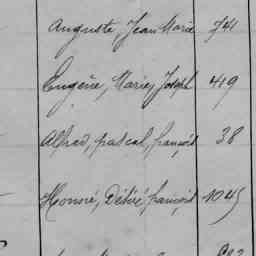 Auguste, Jean Marie 741
Eugène, Marie, Joseph 419
Alfred, pascal, françois 38
Honoré, Désiré, françois 1045